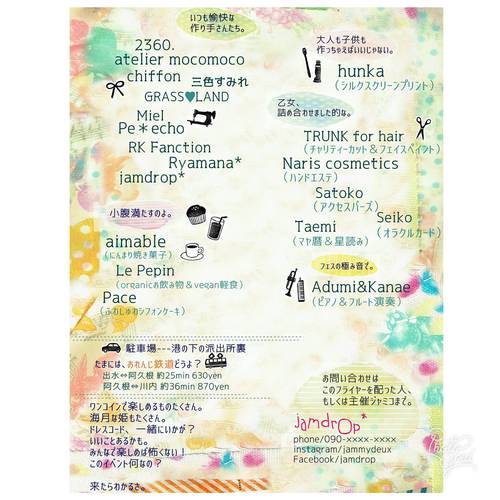 いつも愉快な
作り手さんたち。
2360.
atelier mocomoco
chiffon 三色すみれ
GRASS♥LAND
Miel
Pe＊echo
RK Fanction
Ryamana*
jamdrop*
小腹満たすのよ。
aimable
（にんまり焼き菓子）
Le Pepin
（organicお飲み物＆vegan軽食）
Pace
（ふわしゅわシフォンケーキ）
大人も子供も
作っちゃえばいいじゃない。
hunka
（シルクスクリーンプリント）
乙女、
詰め合わせました的な。
TRUNK for hair
（チャリティーカット＆フェイスペイント）
Naris cosmetics
（ハンドエステ）
Satoko
（アクセスバーズ）
Seiko
（オラクルカード）
Taemi
（マヤ暦＆星読み）
フェスの極み音で。
Adumi&Kanae
（ピアノ＆フルート演奏）
駐車場---港の下の派出所裏
たまには、おれんじ鉄道どうよ？
出水⇔阿久根 約25min 630yen
阿久根⇔川内 約36min 870yen
ワンコインで楽しめるものたくさん。
海月な姫もたくさん。
ドレスコード、一緒にいいか？
いいことあるかも。
みんなで楽しめば怖くない！
このイベント何なの？
来たらわかるさ。
お問い合わせは
このフライヤーを配った人、
もしくは主催ジャミコまで。
jamdrop*
phone/090-××××-××××
instagram/jammydeux
Facebook/jamdrop